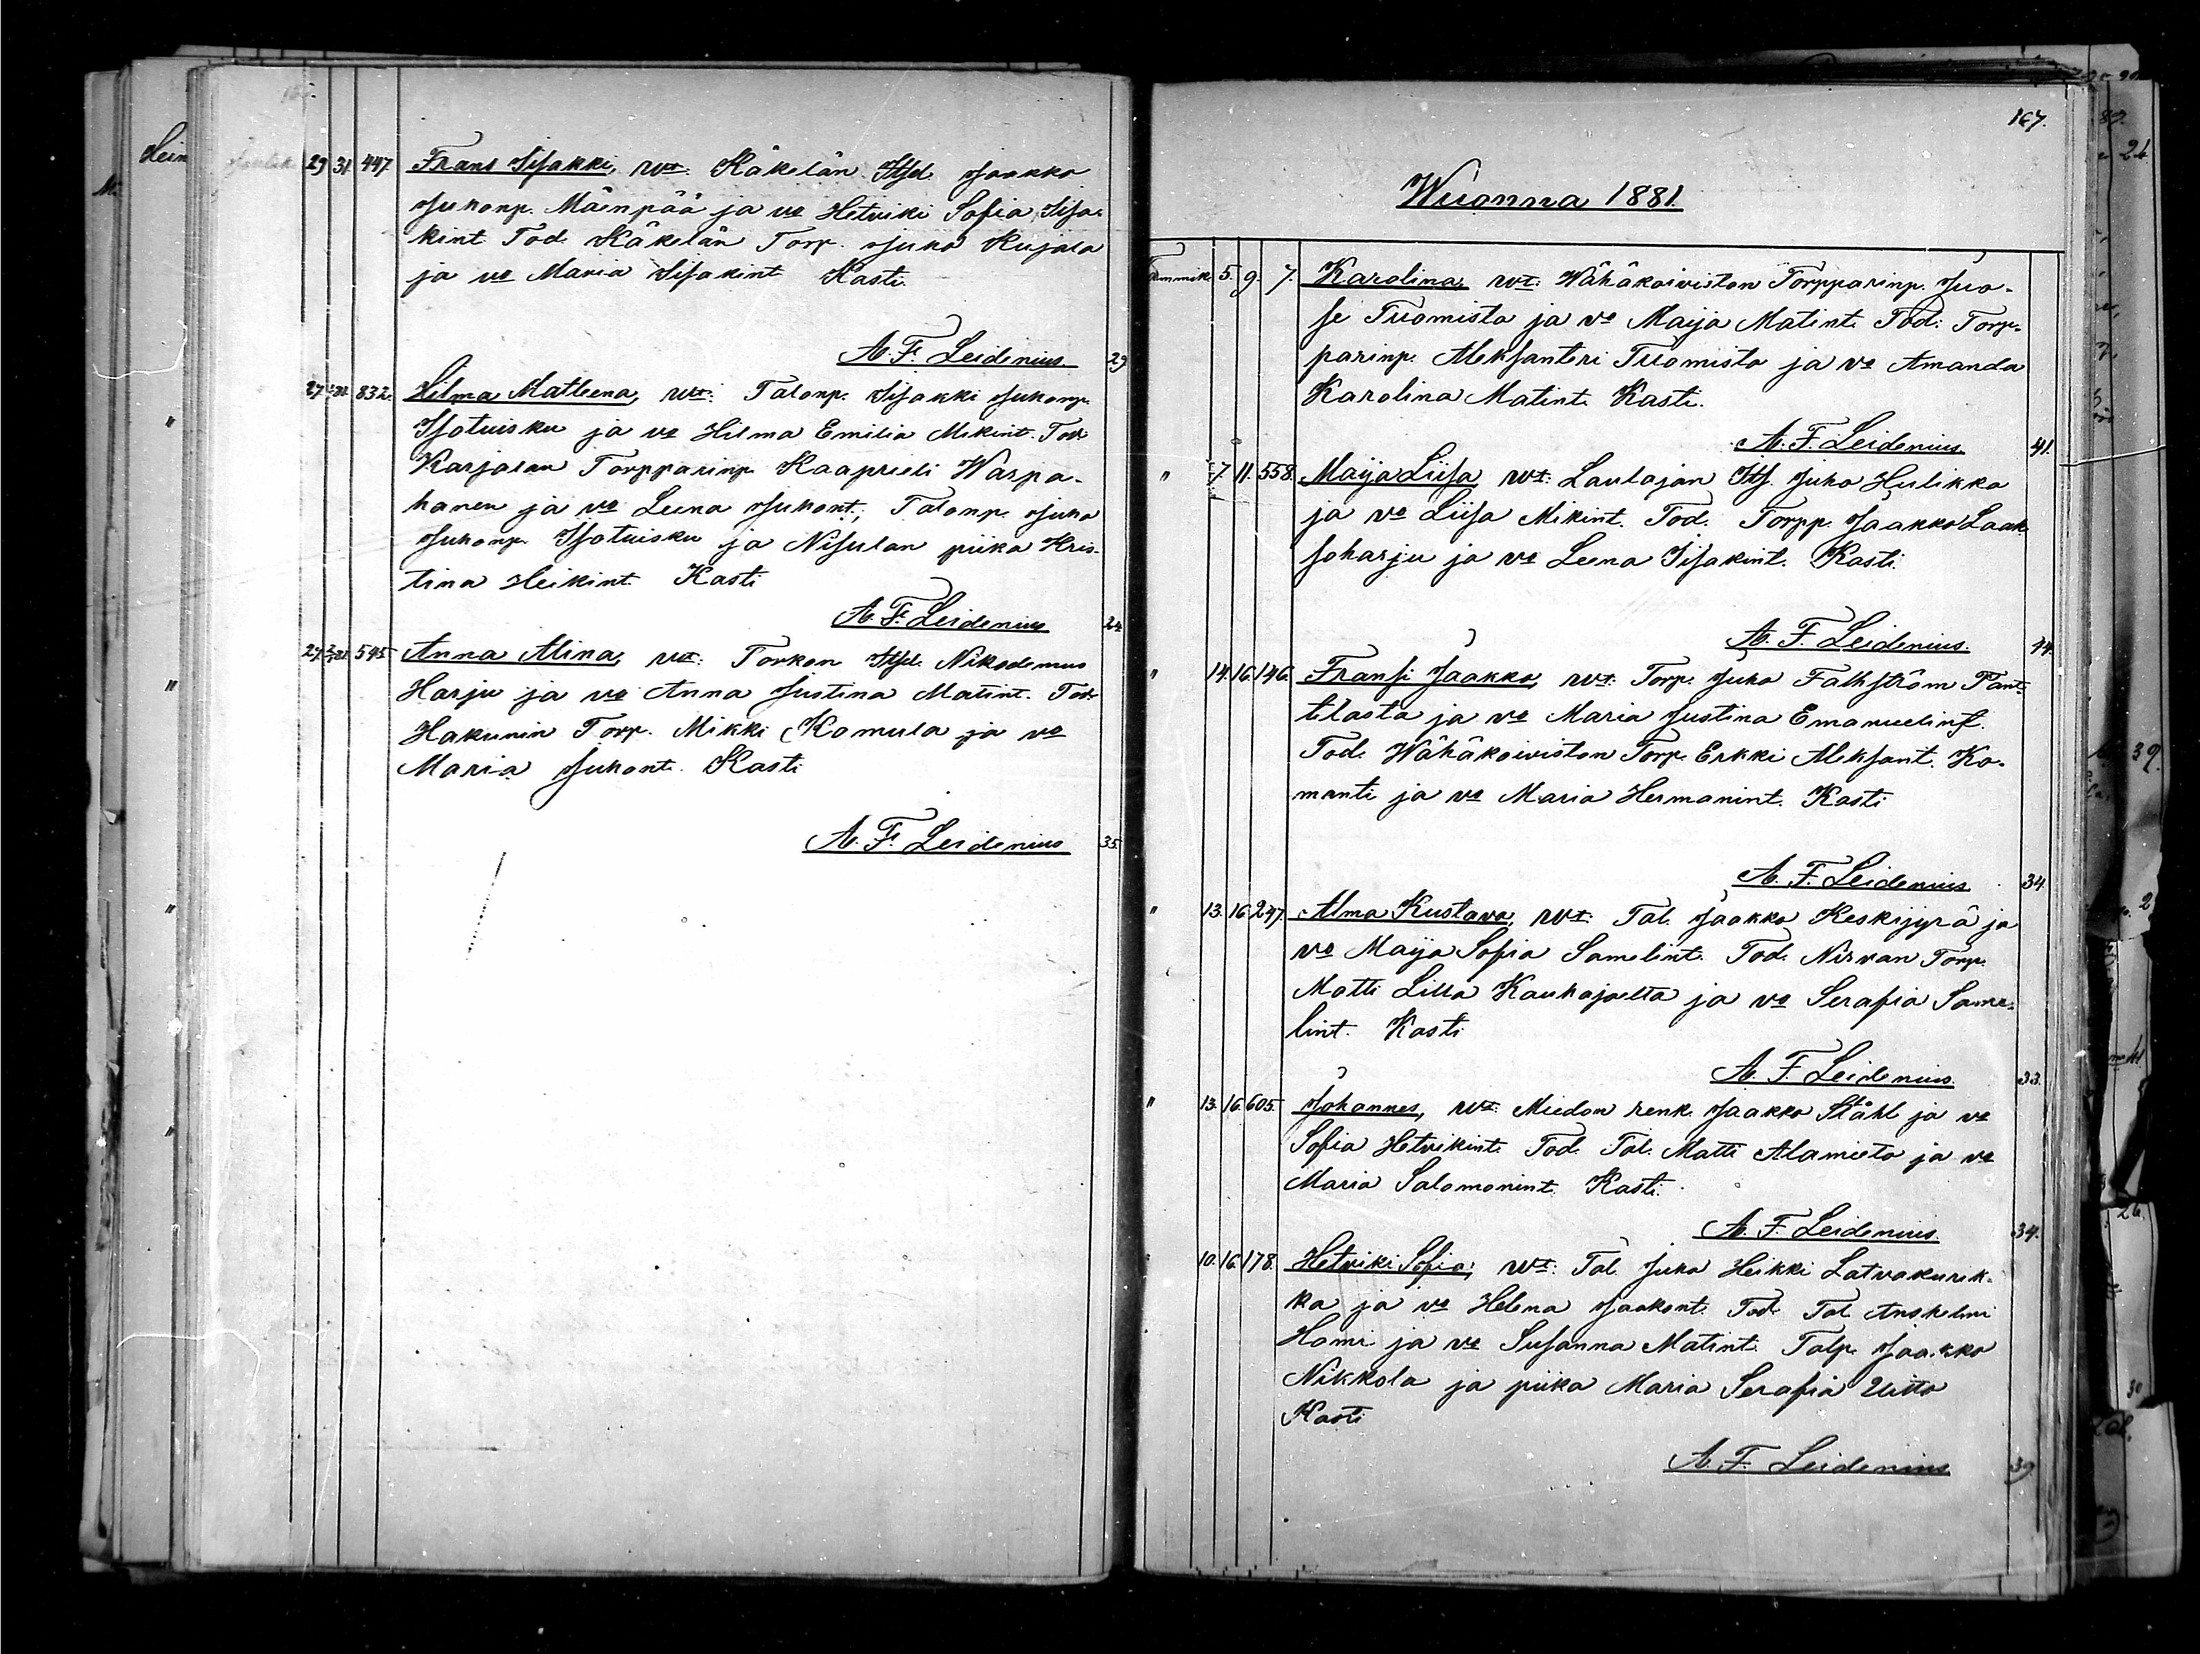 Jouluk. 29 31. 447. Frans Iisakki, wt: Käkelän Itsel. Jaakko
Juhonp. Mäenpää ja vo Hetviki Sofia Iisa-
kint Tod. Käkelän Torp. Juho Kujala
ja vo Maria Iisakint Kasti.
A. F. Leidenius 29
27. 832. Hilma Matleena, wt: Talonp. Iisakki Juhonp.
Isotuisku ja vo Hilma Emilia Mikint. Tod
Karjalan Torpparinp. Kaaprieli Warpa-
hanen ja vo Leena Juhont., Talonp. Juho
Juhonp. Isotuisku ja Nisulan piika Kris-
tina Heikint. Kasti
A. F. Leidenius 24
27. 545. Anna Alina, wt: Torkon Itsel. Nikodemus
Harju ja vo Anna Justina Matint. Tod.
Hakunin Torp. Mikki Komula ja vo
Maria Juhont. Kasti
A. F. Leidenius 35.
167.
Wuonna 1881.
Tammik. 5. 9. 7. Karolina, wt: Wähäkoiviston Torpparinp. Juo-
se Tuomisto ja vo Maija Matint. Tod: Torp-
parinp. Aleksanteri Tuomisto ja vo Amanda
Karolina Matint. Kasti.
A. F. Leidenius. 41.
" 7. 11. 558. Maija Liisa, wt: Laulajan Its. Juho Hulikka
ja vo Liisa Mikint. Tod. Torpp. Jaakko Laak-
soharju ja vo Leena Iisakint. Kasti.
A. F. Leidenius. 44.
" 14. 16. 146. Fransi Jaakko, wt: Torp. Juho Falkström Pant-
tilasta ja vo Maria Justina Emanuelint.
Tod. Wähäkoiviston Torp. Erkki Aleksant. Ko-
manti ja vo Maria Hermanint. Kasti
A. F. Leidenius. 34.
" 13. 16. 247. Alma Kustava, wt: Tal. Jaakko Keskijyrä ja
vo Maija Sofia Samelint. Tod. Nirvan Torp.
Matti Lilla Kauhajoelta ja vo Serafia Same-
lint. Kasti
A. F. Leidenius. 33.
" 13. 16. 605. Johannes, wt: Miedon renk. Jaakko Ståhl ja vo
Sofia Hetvikint. Tod. Tal. Matti Alamieto ja vo
Maria Salomonint. Kasti.
A. F. Leidenius. 34.
" 10. 16. 178. Hetviki Sofia, wt: Tal. Juho Heikki Latvakurik-
ka ja vo Helena Jaakont. Tod. Tal. Anshelmi
Homi ja vo Susanna Matint. Talp. Jaakko
Nikkola ja piika Maria Serafia Uitto
Kasti
A. F. Leidenius 39